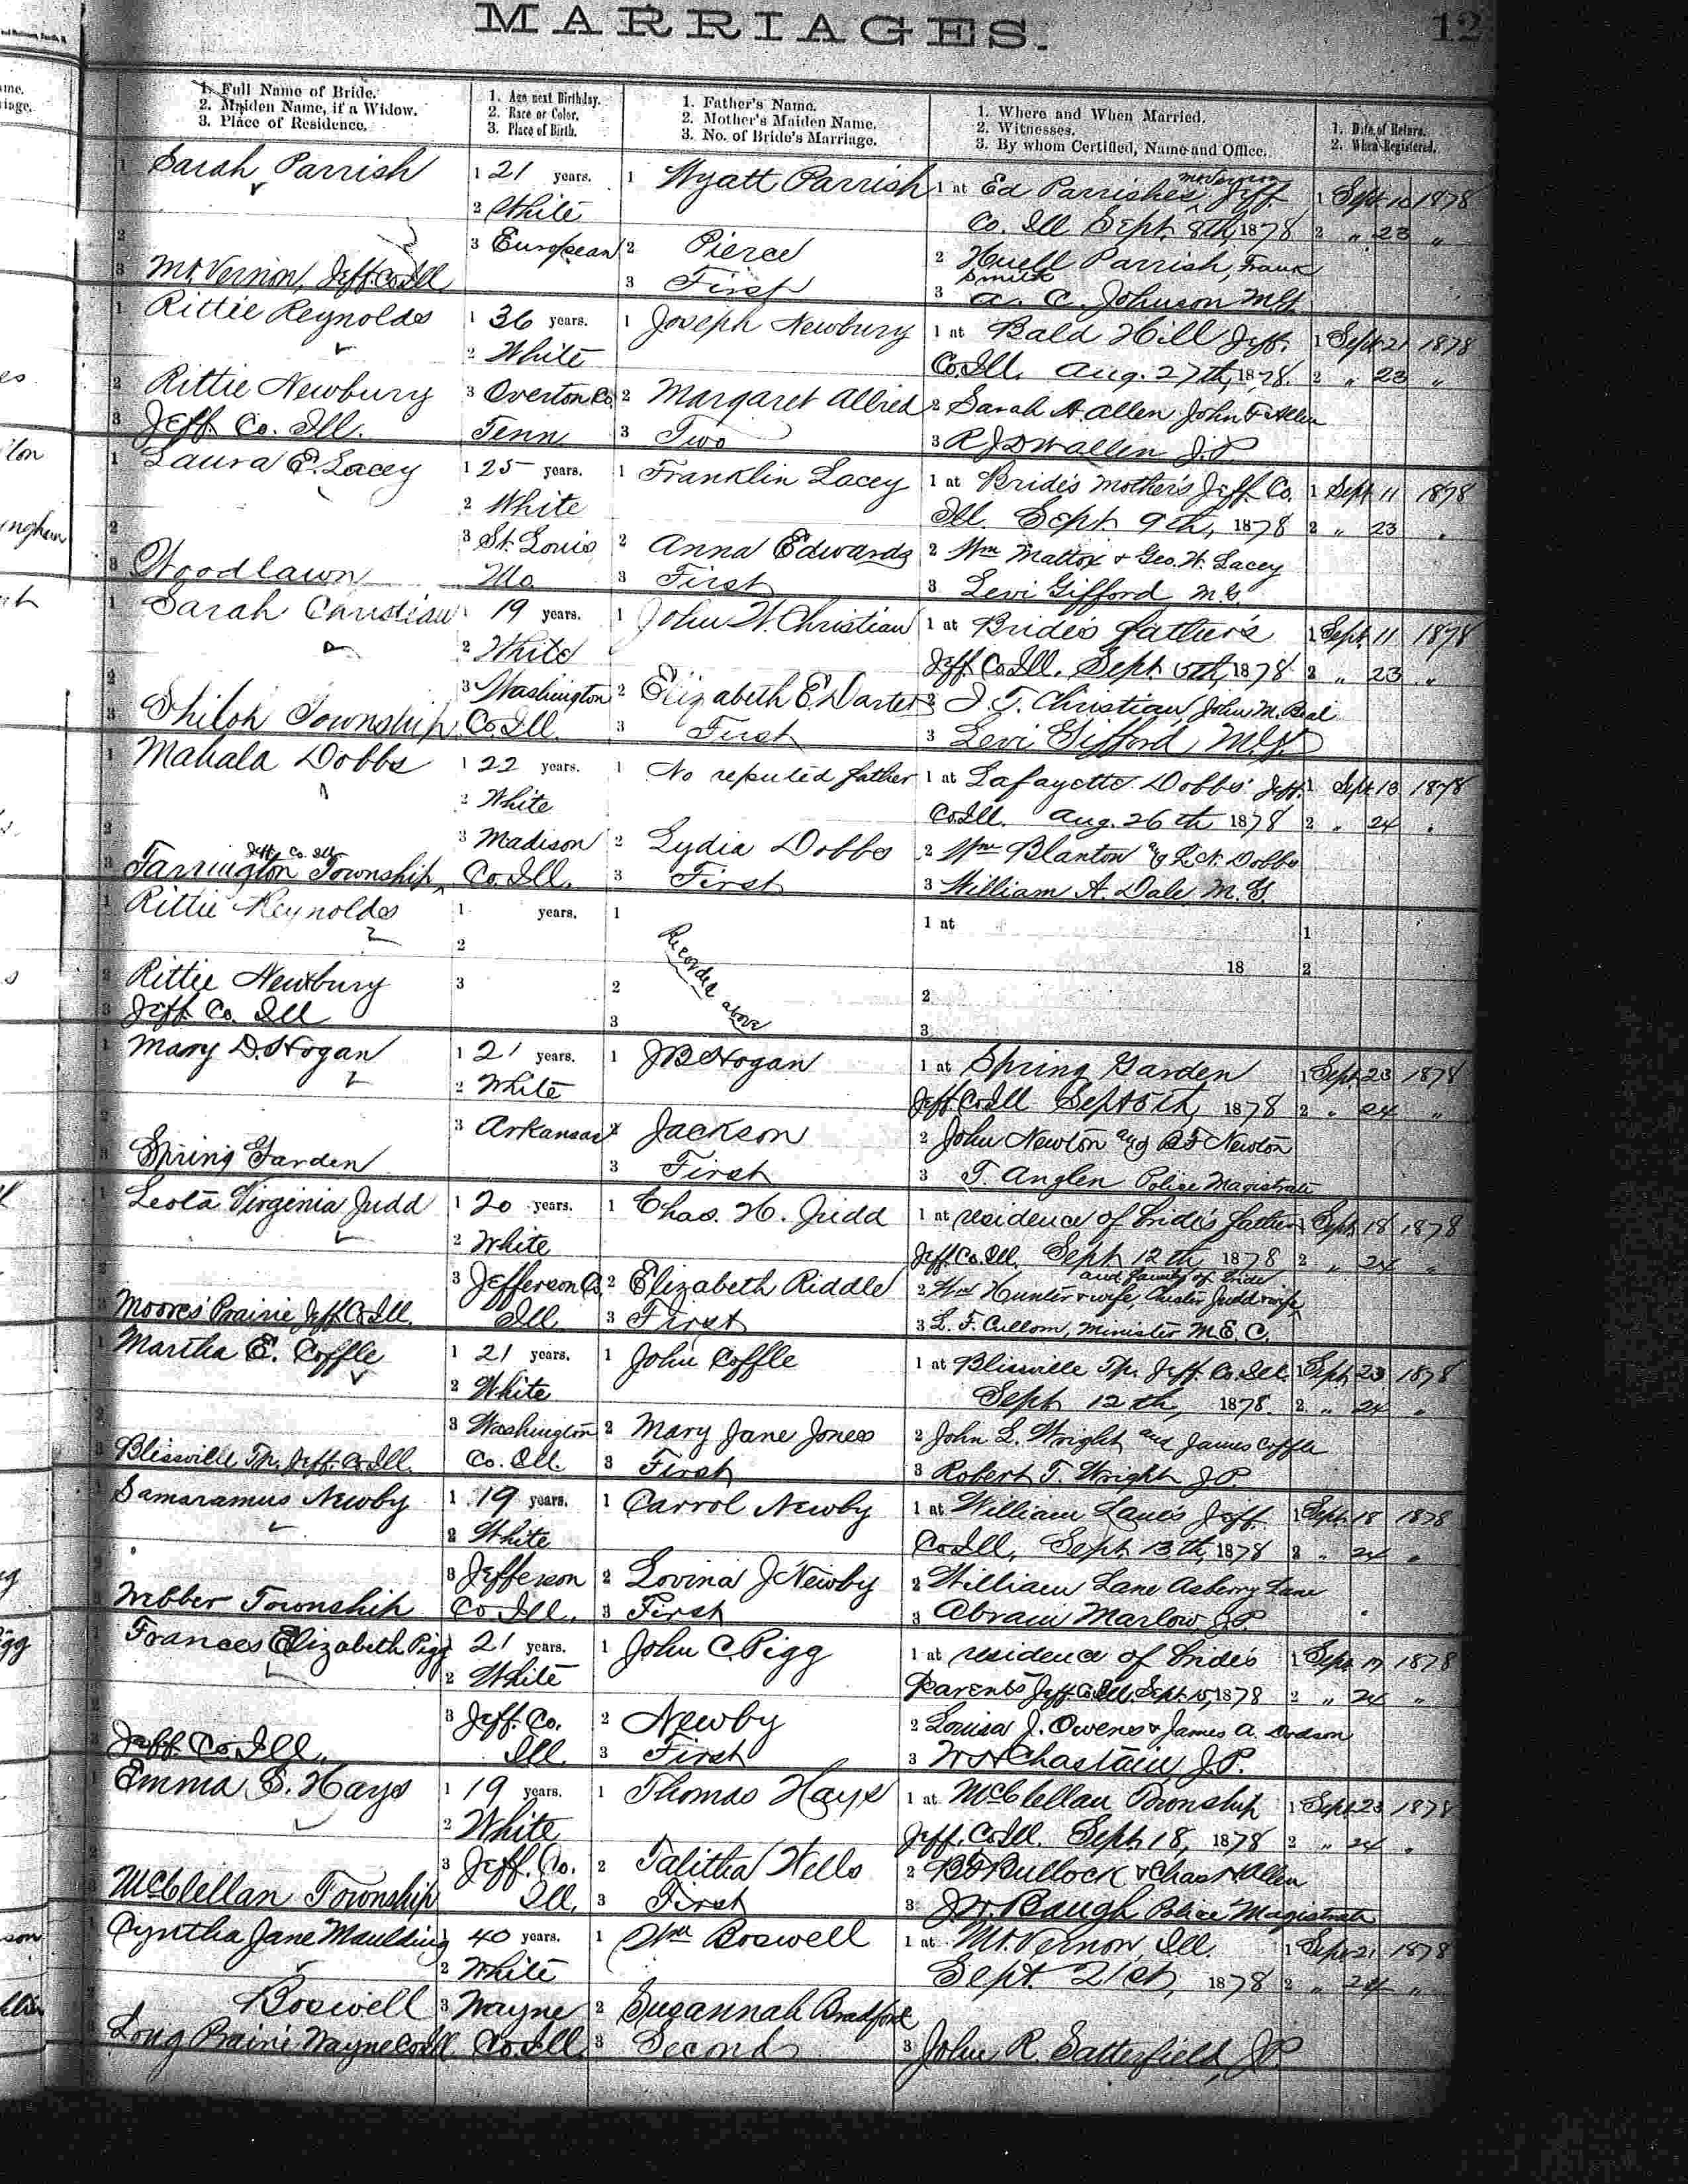 MARRIAGES.
12
1. Full Name of Bride.
2. Maiden Name, if a Widow.
3. Place of Residence.
1. Age next Birthday.
2. Race or Color.
3. Place of Birth.
1. Father's Name.
2. Mother's Maiden Name.
3. No. of Bride's Marriage.
1. Where and When Married.
2. Witnesses.
3. By whom Certified, Name and Office.
1. Date of Return.
2. When Registered.
1 Sarah Parrish
2
3 Mt. Vernon, Jeff. Co. Ill
1 21 years.
2 White
3 European
1 Wyatt Parrish
2 Pierce
3 First
1 at Ed Parrishes, Mt Vernon Jeff
Co. Ill Sept. 8th, 1878
2 Huell Parrish, Frank
Smith
3 A. C. Johnson M.G.
1 Sept 1878
2 " 23 "
1 Rittie Reynolds
2 Rittie Newbury
3 Jeff. Co. Ill.
1 36 years.
2 White
3 Overton Co.
Tenn
1 Joseph Newbury
2 Margaret Allred
3 Two
1 at Bald Hill Jeff.
Co. Ill. Aug. 27th, 1878.
2 Sarah A. Allen John F Allen
3 R J D Wallen J.P.
1 Sept 21 1878
2 " 23 "
1 Laura E. Lacey
2
3 Woodlawn
1 25 years.
2 White
3 St. Louis
Mo
1 Franklin Lacey
2 Anna Edwards
3 First
1 at Bride's Mother's Jeff. Co.
Ill. Sept. 9th, 1878
2 Wm Mattox & Geo. W. Lacey
3 Levi Gifford M.G.
1 Sept 11 1878
2 " 23 "
1 Sarah Christian
2
3 Shiloh Township
1 19 years.
2 White
3 Washington
Co. Ill.
1 John W. Christian
2 Elizabeth E. Darter
3 First
1 at Bride's father's
Jeff. Co. Ill. Sept. 5th, 1878
2 J. T. Christian, John M. Beal
3 Levi Gifford, M.G.
1 Sept. 11 1878
2 " 23 "
1 Mahala Dobbs
2
Jeff. Co. Ill
3 Farrington Township
1 22 years.
2 White
3 Madison
Co. Ill.
1 No reputed father
2 Lydia Dobbs
3 First
1 at Lafayette Dobbs' Jeff.
Co. Ill. Aug. 26th 1878
2 Wm Blanton and L. N. Dobbs
3 William A. Dale, M.G.
1 Sept 13 1878
2 " 24 "
1 Rittie Reynolds
2 Rittie Newbury
3 Jeff. Co. Ill
1 years.
2
3
1
2
3
Recorded above
1 at
18
2
3
1
2
1 Mary D. Hogan
2
3 Spring Garden
1 21 years.
2 White
3 Arkansas
1 J B Hogan
2 Jackson
3 First
1 at Spring Garden
Jeff Co Ill Sept 5th, 1878
2 John Newton and B F Newton
3 T. Anglen Police Magistrate
1 Sept. 23 1878
2 " 24 "
1 Leota Virginia Judd
2
3 Moores' Prairie Jeff. Co Ill.
1 20 years.
2 White
3 Jefferson Co.
Ill
1 Chas. H. Judd
2 Elizabeth Riddle
3 First
1 at residence of bride's father
Jeff. Co. Ill. Sept 12th 1878
and family of bride
2 Wm Hunter & wife, Chester Judd & wife
3 L. F. Cullom, Minister M. E. C.
1 Sept. 18 1878
2 " 24 "
1 Martha E. Coffle
2
3 Blissville Tp. Jeff. Co Ill.
1 21 years.
2 White
3 Washington
Co. Ill.
1 John Coffle
2 Mary Jane Jones
3 First
1 at Blissville Tp. Jeff. Co. Ill.
Sept 12th, 1878.
2 John L. Wright and James Coffle
3 Robert T. Wright J.P.
1 Sept. 23 1878
2 " 24 "
1 Samaramus Newby
2
3 Webber Township
1 19 years.
2 White
3 Jefferson
Co Ill.
1 Carrol Newby
2 Lovina J Newby
3 First
1 at William Lane's Jeff.
Co Ill, Sept 13th, 1878
2 William Lane Asberry Lane
3 Abram Marlow, J.P.
1 Sept. 18 1878
2 " 24 "
1 Frances Elizabeth Pigg
2
3 Jeff. Co Ill.
21 years.
2 White
3 Jeff. Co.
Ill.
1 John C. Pigg
2 Newby
3 First
1 at residence of bride's
Parents Jeff. Co Ill, Sept. 15, 1878
2 Louisa J. Owens & James A. Dodson
3 W H Chastain J.P.
1 Sept. 17 1878
2 " 24 "
1 Emma S. Hays
2
3 McClellan Township
1 19 years.
2 White
3 Jeff. Co.
Ill.
1 Thomas Hays
2 Talitha Wells
3 First
1 at McClellan Township
Jeff. Co. Ill. Sept. 18, 1878
2 Bullock & Chas H Allen
3 J. W. Baugh Police Magistrate
1 Sept 23 1878
2 " 24 "
1 Cyntha Jane Maulding
2 Boswell
3 Long Prairie Wayne Co Ill
40 years.
2 White
3 Wayne
Co. Ill.
1 Wm Boswell
2 Susannah Bradford
3 Second
1 at Mt. Vernon, Ill.
Sept. 21st, 1878
3 John R. Satterfield, J.P.
1 Sept 21 1878
2 " 24 "